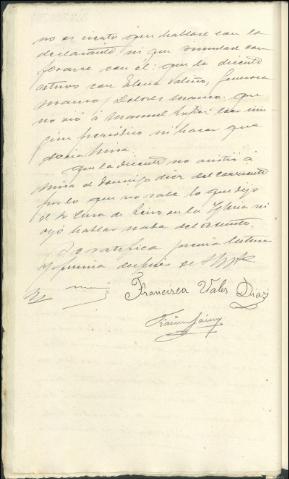 no es cierto que hablase con la
declarante ni que
con el: que la dicente
estuvo con Elena Valiño, Genoveva
Mauro, Dolores Mauro: que
no vió a Manuel con nin-
gún periódico ni hacer que
decía Misa.
Que la dicente no asistió á
misa el domingo diez del corriente
por lo que no sabe lo que dijo
el Sr Cura de en la Iglesia ni
oyó hablar nada del asunto.
Se ratifica previa lectura
y firma después de
Francisca Vales Diaz